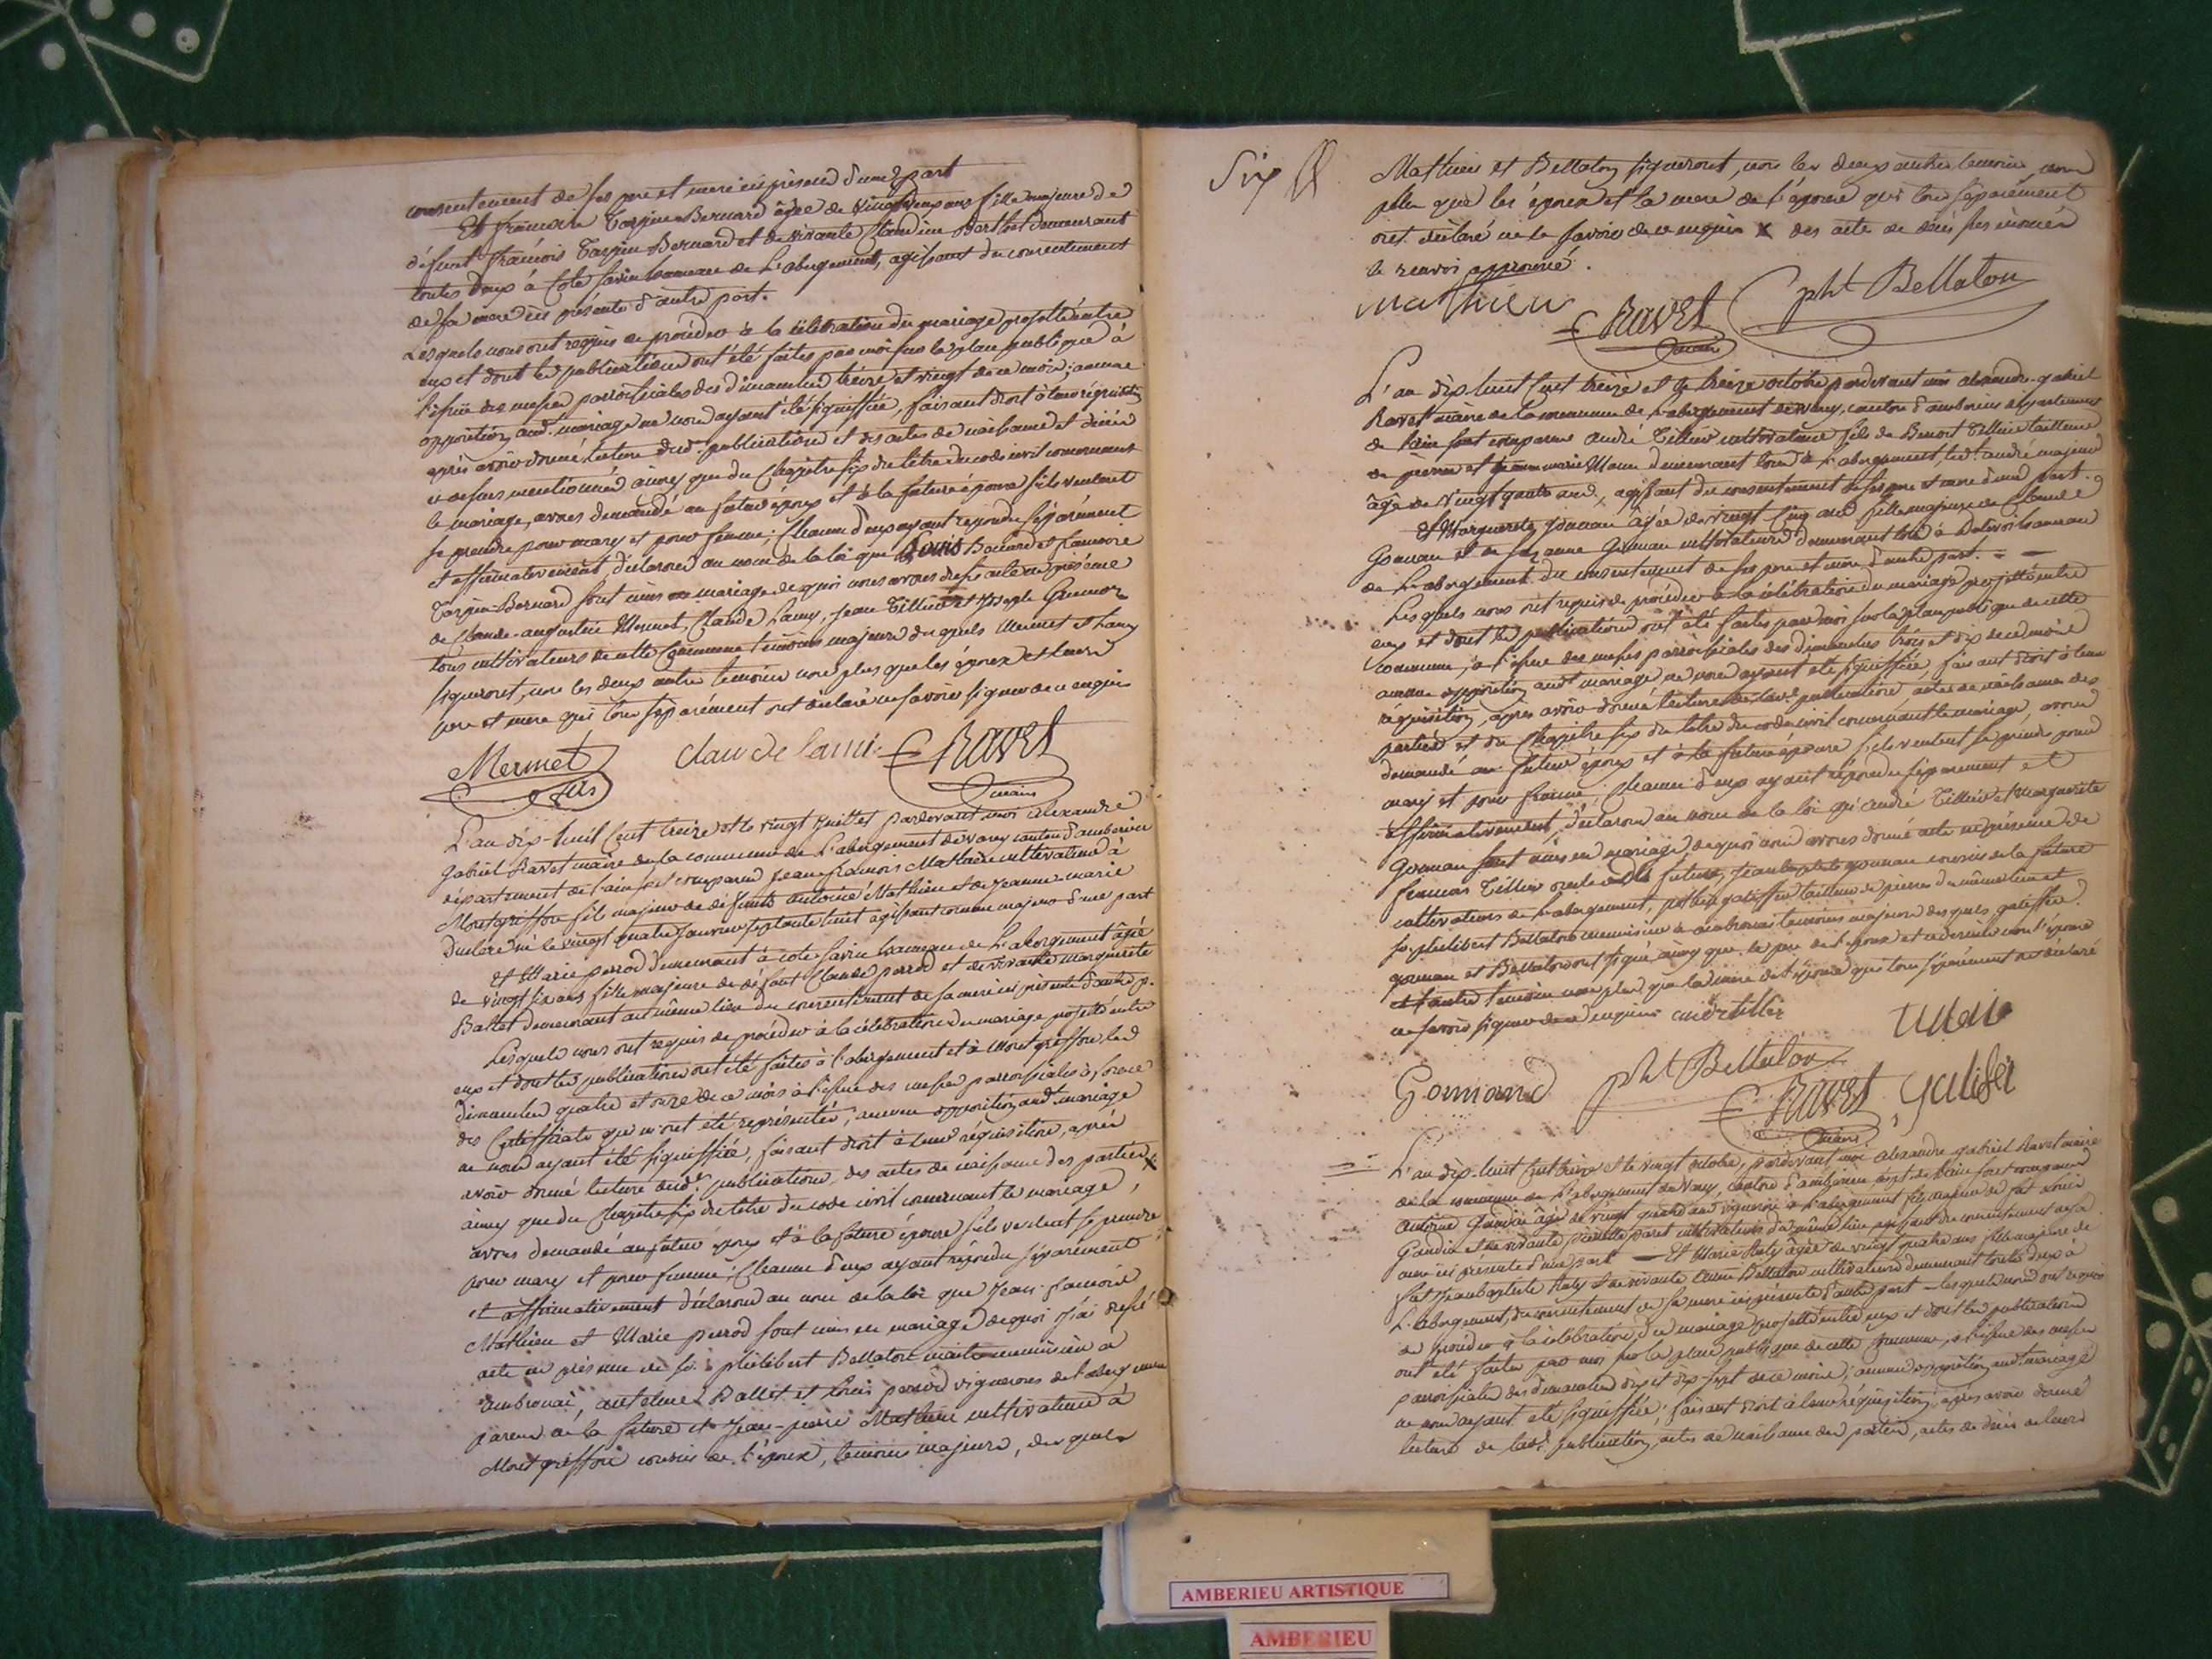 consentement de ses pere et mere ici présens d'une part
Et francoise Tarpin-Bernard âgée de vingt deux ans fille majeure de
défunt françois Tarpin-Bernard et de vivante Claudine Berthet demeurant
toutes deux à Cote savin hameau de L'abergement, agissant du consentement
de sa mere ici présente d'autre part.
Lesquels nous ont requis de procéder à la célébration du mariage projetté entre
eux et dont les publications ont été faites par moi sur la place publique à
l'issüe des messes parroissiales des dimanches treize et vingt de ce mois; aucune
opposition aud. mariage ne nous ayant été signiffiée, faisant droit à leur réquisition
après avoir donné lecture desd. publications et des actes de naissance et décès
ci dessus mentionnés ainsy que du Chapitre six du titre du code civil concernant
le mariage, avons demandé au futur époux et à la future épouse s'ils veulent
se prendre pour mary et pour femme; Chacun d'eux ayant répondu séparément
et affirmativement, déclarons au nom de la loi que Louis et francoise
Tarpin-Bernard sont unis en mariage de quoi nous avons dressé acte en présence
de Claude-augustin Mermet, Claude Lamy, Jean Tillier et Joseph
tous cultivateurs de cette Commune témoins majeurs desquels Mermet et Lamy
signeront, non les deux autres temoins non plus que les époux et leurs
pere et mere qui tous séparément ont déclaré ne savoir signer de ce enquis
Mermet Claude lami Ravet
fils maire
L'an dix-huit Cent treize et le vingt juillet pardevant moi alexandre
Gabriel Ravet maire de la commune de L'abergement de varey canton d'amberieu
département de l'ain sont comparus Jean-françois Mathieu cultivateur à
Montgriffon fils majeur de défunts antoine Mathieu et de Jeanne-marie
né le vingt quatre janvier septante huit agissant comme majeur d'une part
Et Marie perrod demeurant à cote savin hameau de L'abergement âgée
de vingt six ans fille majeure de défunt Claude perrod et de vivante marguerite
Ballet demeurant au même lieu du consentement de sa mere ici présente d'autre p.
Lesquels nous ont requis de procéder à la célébration du mariage projetté entre
eux et dont les publications ont été faites à l'abergement et à Montgriffon les
dimanches quatre et onze de ce mois à l'issue des messes parroissiales à forme
des Certifficats qui m'ont été représentés; aucune opposition aud. mariage
ne nous ayant été signiffiée, faisant droit à leur réquisition, après
avoir donné lecture desd. publications, des actes de naissance des parties x
ainsy que du Chapitre six du titre du code civil concernant le mariage,
avons demandé au futur époux et à la future épouse s'ils veulent se prendre
pour mary et pour femme; Chacun d'eux ayant répondu séparément
et affirmativement déclarons au nom de la loi que Jean-francois
Mathieu et Marie perrod sont unis en mariage de quoi j'ai dressé
acte en présence de sr. philibert Bellaton menuisier à
ambronai, antelme Ballet et Louis perrod vignerons de l'abergement
parens de la future et Jean-pierre Mathieu cultivateur à
Montgriffon cousin de l'époux, temoins majeurs, desquels
Six
Mathieu et Bellaton signeront, non les deux autres temoins non
plus que les époux et la mere de l'épouse qui tous séparément
ont déclaré ne le savoir de ce enquis x des acte de décès sus énoncés
le renvoi approuvé.
Mathieu Ravet pht Bellaton
maire
L'an dix-huit Cent treize et le treize octobre pardevant moi alexandre-gabriel
Ravet maire de la commune de L'abergement de varey, canton d'amberieu département
de l'ain sont comparus andré Tillier cultivateur fils de Benoit Tillier tailleur
de pierres et Jeanne marie demeurant tous à L'abergement, led. andré majeur
âgé de vingt quatre ans, agissant du consentement de ses pere et mere d'une part.
Et Marguerite gonnan âgée de vingt-Cinq ans fille majeure de Claude
Gonnan et de suzanne Gonnan cultivateurs demeurant tous à hameau
de L'abergement du consentement de ses pere et mere d'autre part.
Lesquels nous ont requis de procéder à la célébration du mariage projetté entre
eux et dont les publications ont été faites par moi sur la place publique de cette
commune, à l'issue des messes parroissiales des dimanches trois et dix de ce mois
aucune opposition audt mariage ne nous ayant été signiffiée, faisant droit à leur
réquisition, après avoir donné lecture publications actes de naissance des
parties et du Chapitre six du titre du code civil concernant le mariage, avons
demandé au futur époux et à la future épouse s'ils veulent se prendre pour
mary et pour femme. Chacun d'eux ayant répondu séparement et
affirmativement, déclarons au nom de la loi qu'andré Tillier et marguerite
Gonnan sont unis en mariage de quoi nous avons donné acte en présence de
francois Tillier oncle du futur, Jean baptiste gonnan cousin de la future
cultivateurs de L'abergement, tailleur de pierres du même lieu et
sr. philibert Bellaton menuisier à ambronai temoins majeurs desquels
gonnan et Bellaton ont signé ainsy que le pere de l'époux et ce dernier non l'épouse
et l'autre temoin non plus que la mere de l'épouse qui tous séparément ont déclaré
ne savoir signer de ce enquis andr tillier tillier
Gonnand pht Bellaton
Ravet
maire
L'an dix-huit Cent treize et le vingt octobre, pardevant moi alexandre gabriel Ravet maire
de la commune de L'abergement de varey, canton d'ambérieu dépt. de l'ain sont comparus
antoine Gandin âgé de vingt quatre ans vigneron à L'abergement fils majeur de
Gandin et de vivante cultivateurs du même lieu agissant du consentement de sa
mere ici présente d'une part — Et Marie âgée de vingt quatre ans fille majeure de
Jeanbaptiste et de vivante Bellaton cultivateurs demeurant toutes deux à
L'abergement, du consentement de sa mere ici présente d'autre part — lesquels nous ont requis
de procéder à la célébration du mariage projetté entre eux et dont les publications
ont été faites par moi sur la place publique de cette commune, à l'issue des messes
parroissiales des dimanches dix et dix-sept de ce mois; aucune opposition audt. mariage
ne nous ayant été signiffiée; faisant droit à leur réquisition, après avoir donné
lecture de lad. publication, actes de naissance des parties, actes de décès de leurs
AMBERIEU ARTISTIQUE
AMBERIEU